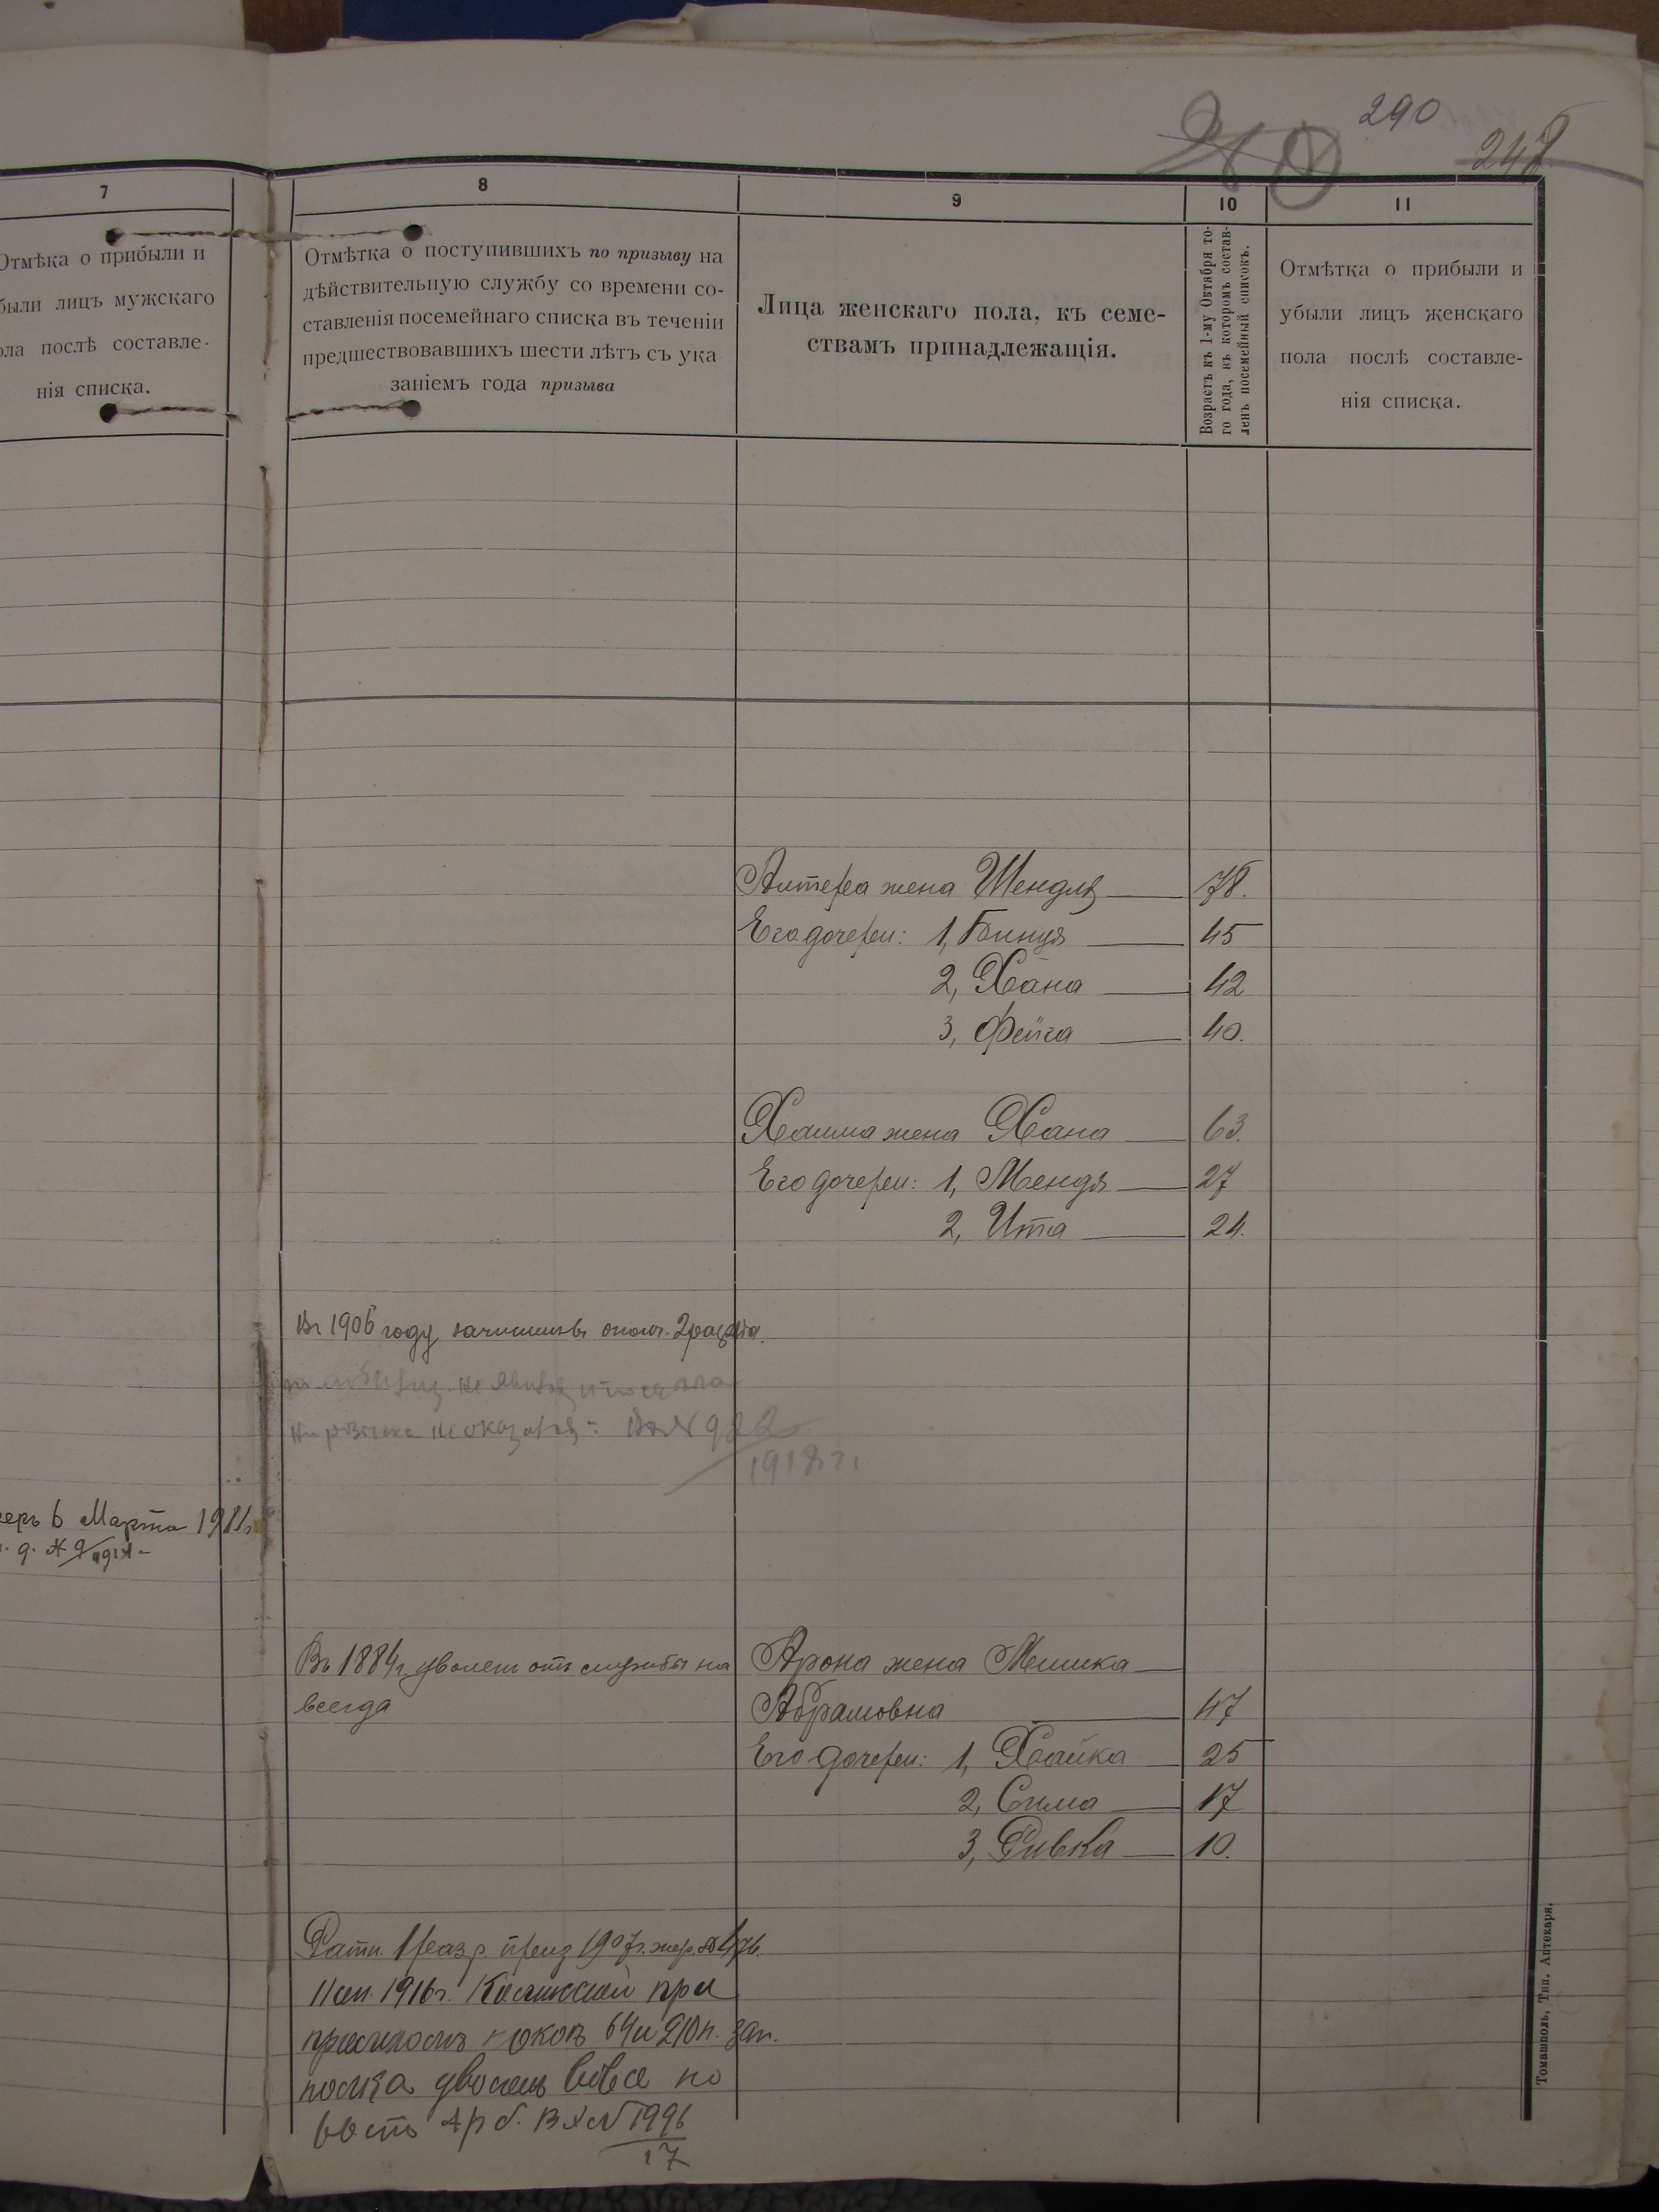 290
248
7
8
9
10
11
Отмѣка о прибыли и
были лицъ мужскаго
ола послѣ составле-
нія списка.
Отмѣтка о поступившихъ по призыву на
дѣйствительную службу со времени со-
ставленія посемейнаго списка въ теченіи
предшествовавшихъ шести лѣтъ съ ука
заніемъ года призыва
Лица женскаго пола, къ семе-
ствамъ принадлежащія.
Возрастъ къ 1-му Октября то-
го года, въ которомъ состав-
ленъ посемейный списокъ.
Отмѣтка о прибыли и
убыли лицъ женскаго
пола послѣ составле-
нія списка.
Антера жена Шендля 78.
Его дочери: 1, Бинця 45
2, Хана 42
3, Фейга 40.
Хаима жена Хана 63.
Его дочери: 1, Мендя 27
2, Ита 24.
Въ 1906 году зачисленъ 2 разряда.
не явился
не оказался: 922
1918 г.
6 Марта 1911 г.
Въ 1884 г. уволенъ отъ службы на
всегда
Арона жена Мешка
Абрамовна 47
Его дочери: 1, Хайка 25
2, Сима 17
3, Ривка 10.
Ратн. 1 разр. 1907 г. жер.
11 1916 г.
64 и 210 п. зап.
полка уволенъ вовсе по
ст 1996
17
Томашполь, Тип. Аптекаря.